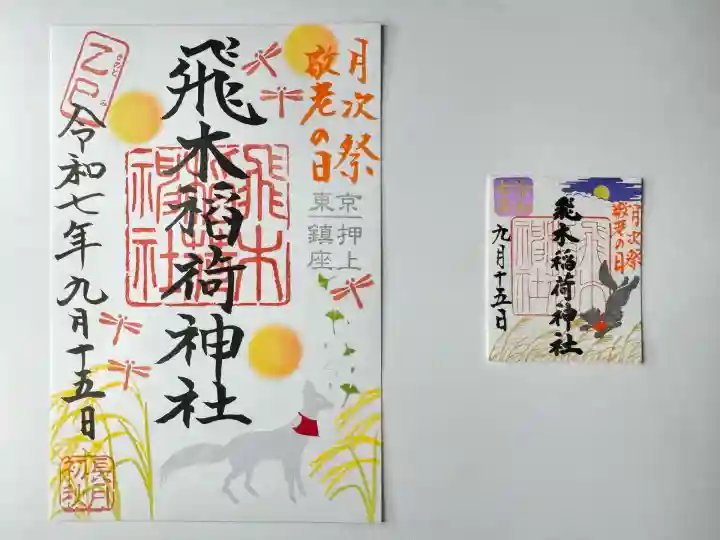 月次祭
敬老の日
東京押上
鎮座
飛木稲荷神社
飛木稲荷神社
乙巳
きのと
み
令和七年九月十五日
長月
初秋
月次祭
敬老の日
飛木稲荷神社
飛木稲荷神社
九月十五日